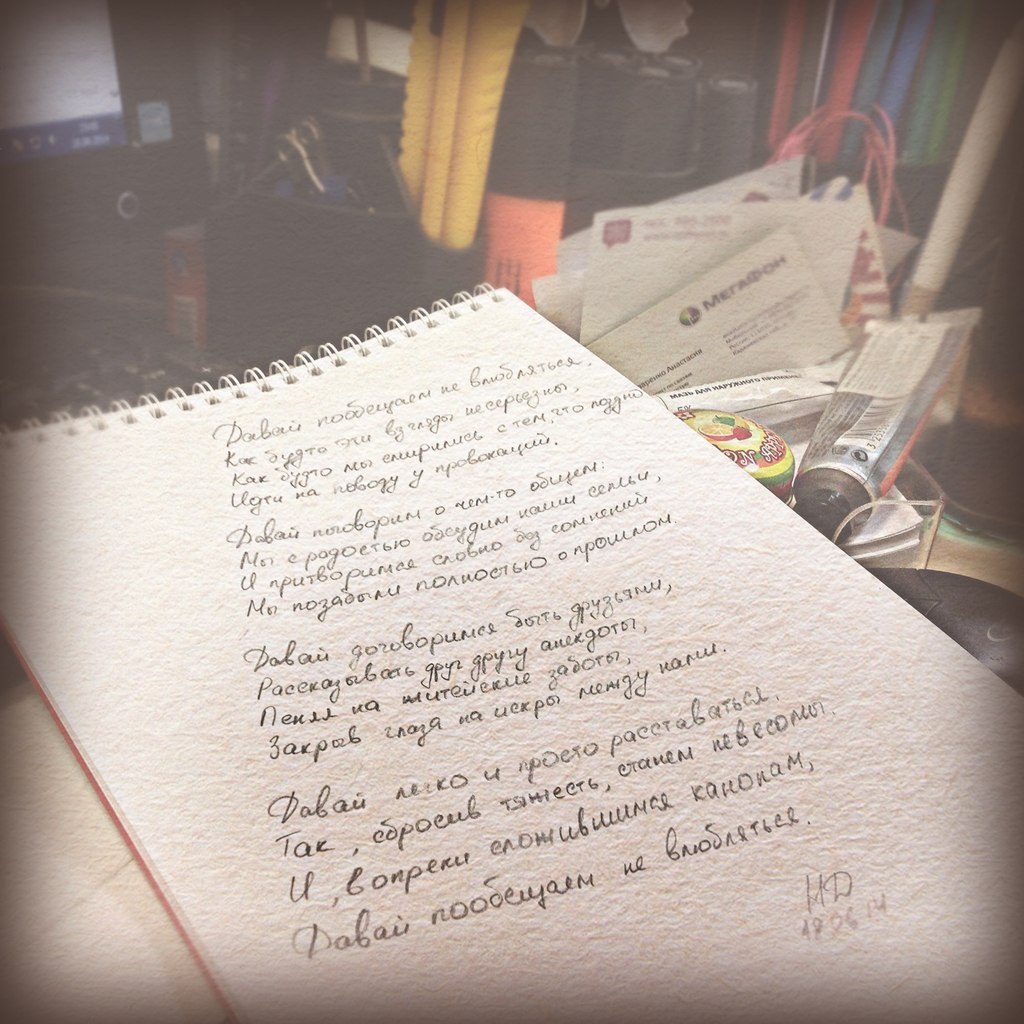 МЕГАФОН
Анастасия
МАЗЬ ДЛЯ НАРУЖНОГО ПРИМЕНЕ
5%
Давай пообещаем не влюбляться,
Как будто эти взгляды несерьезны,
Как будто мы смирились с тем, что поздно
Идти на поводу у провокаций.
Давай поговорим о чем-то общем:
Мы с радостью обсудим наши семьи,
И притворимся словно без сомнений
Мы позабыли полностью о прошлом.
Давай договоримся быть друзьями,
Рассказывать друг другу анекдоты,
Пеняя на житейские заботы,
Закрыв глаза на искры между нами.
Давай легко и просто расставаться.
Так, сбросив тяжесть, станем невесомы.
И, вопреки сложившимся канонам,
Давай пообещаем не влюбляться.
НД
18 06 14